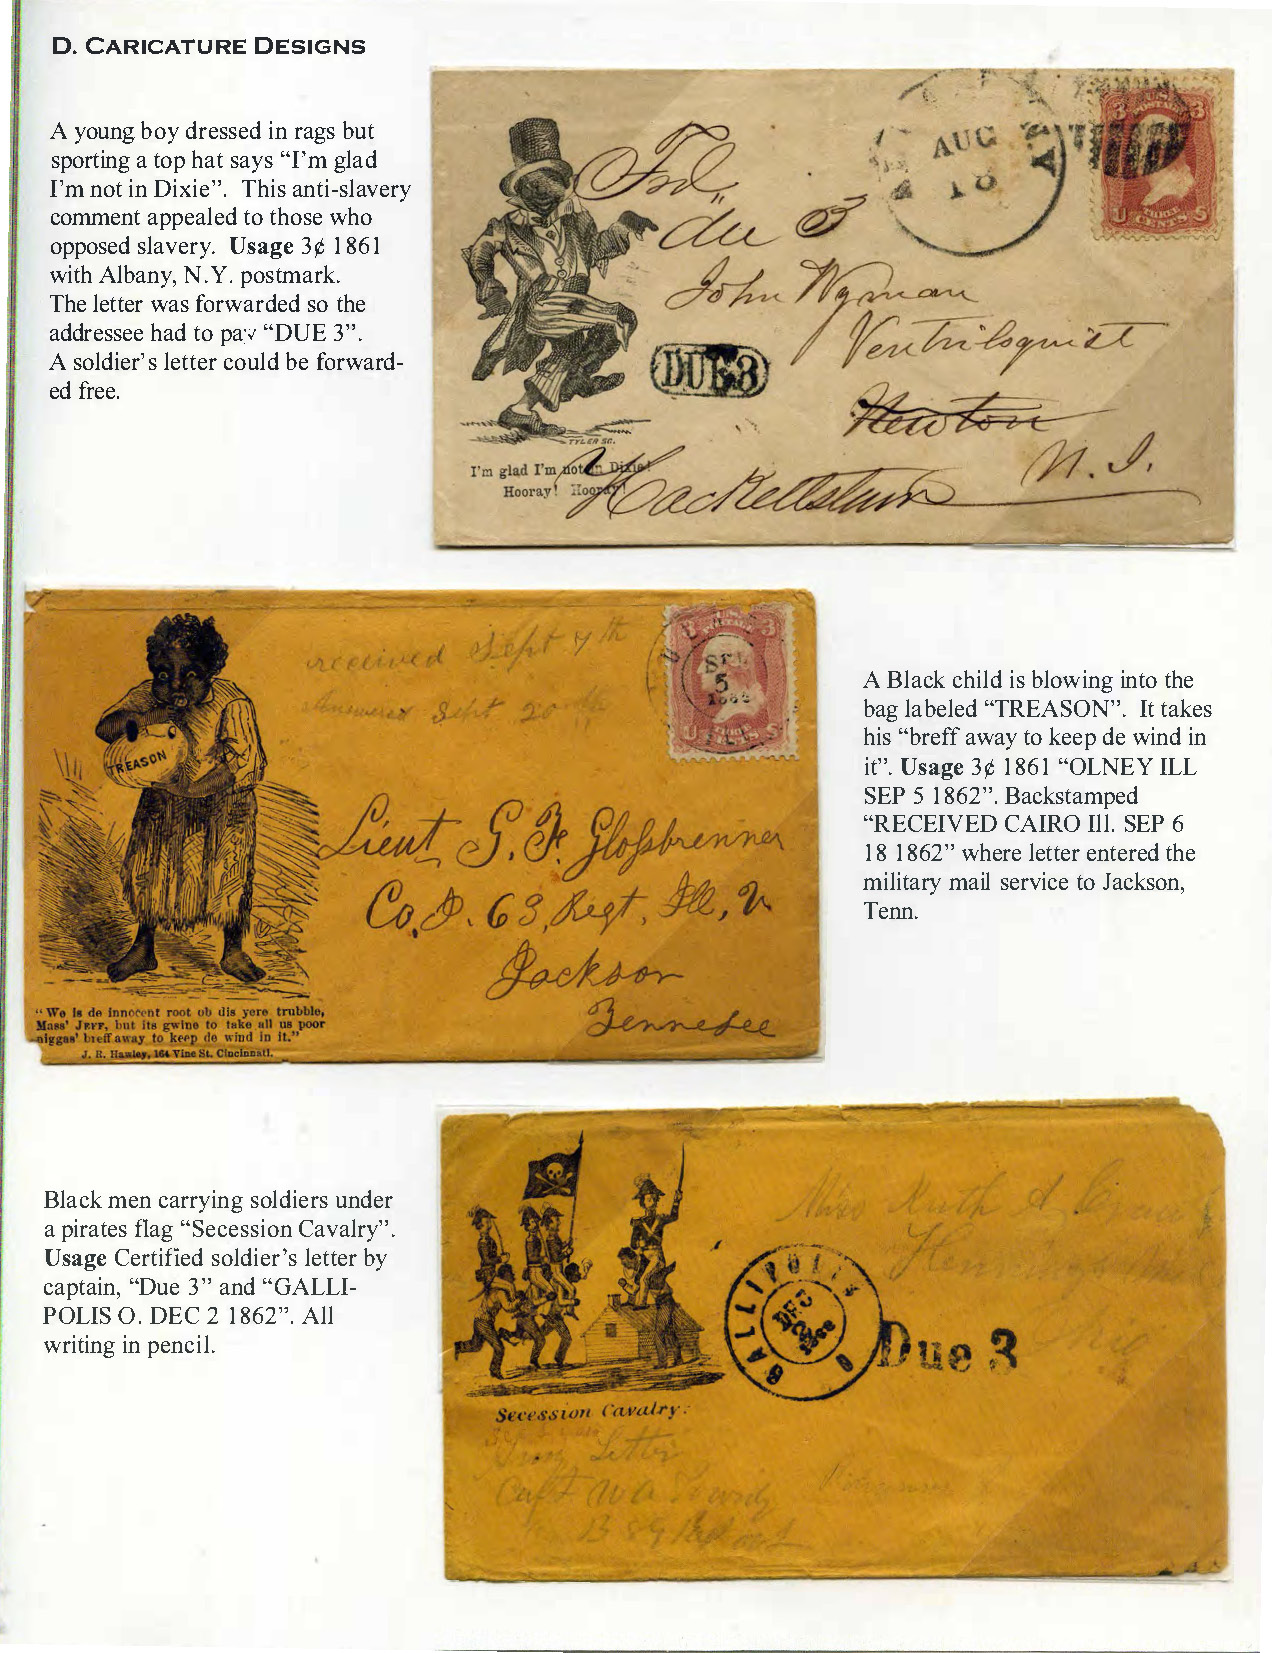 D. CARICATURE DESIGNS
A young boy dressed in rags but
sporting a top hat says “I’m glad
I’m not in Dixie”. This anti-slavery
comment appealed to those who
opposed slavery. Usage 3¢ 1861
with Albany, N.Y. postmark.
The letter was forwarded so the
addressee had to pay “DUE 3”.
A soldier’s letter could be forward-
ed free.
AUG
18
3 3
U S
THREE
CENTS
Ford
due 3
John Wyman
Ventriloquist
Newton
Hackettstown N. J.
DUE 3
TYLER SC.
I'm glad I'm not in Dixie!
Hooray! Hooray!
received Sept 7th
Answered Sept 20
SEP
5
1862
3
U S
ILL
TREASON
Lieut G. F. Glossbrenner
Co, D. 63, Regt, Ill, V.
Jackson
Tennesee
“We is de innocent root ob dis yere trubble,
Mass' JEFF, but its gwine to take all us poor
niggas' breff away to keep de wind in it.”
J. R. Hawley, 164 Vine St. Cincinnati.
A Black child is blowing into the
bag labeled “TREASON”. It takes
his “breff away to keep de wind in
it”. Usage 3¢ 1861 “OLNEY ILL
SEP 5 1862”. Backstamped
“RECEIVED CAIRO Ill. SEP 6
18 1862” where letter entered the
military mail service to Jackson,
Tenn.
Black men carrying soldiers under
a pirates flag “Secession Cavalry”.
Usage Certified soldier’s letter by
captain, “Due 3” and “GALLI-
POLIS O. DEC 2 1862”. All
writing in pencil.
Miss Ruth A
GALLIPOLIS O
DEC
2
1862
Due 3
Secession Cavalry.
Letter
Capt W A